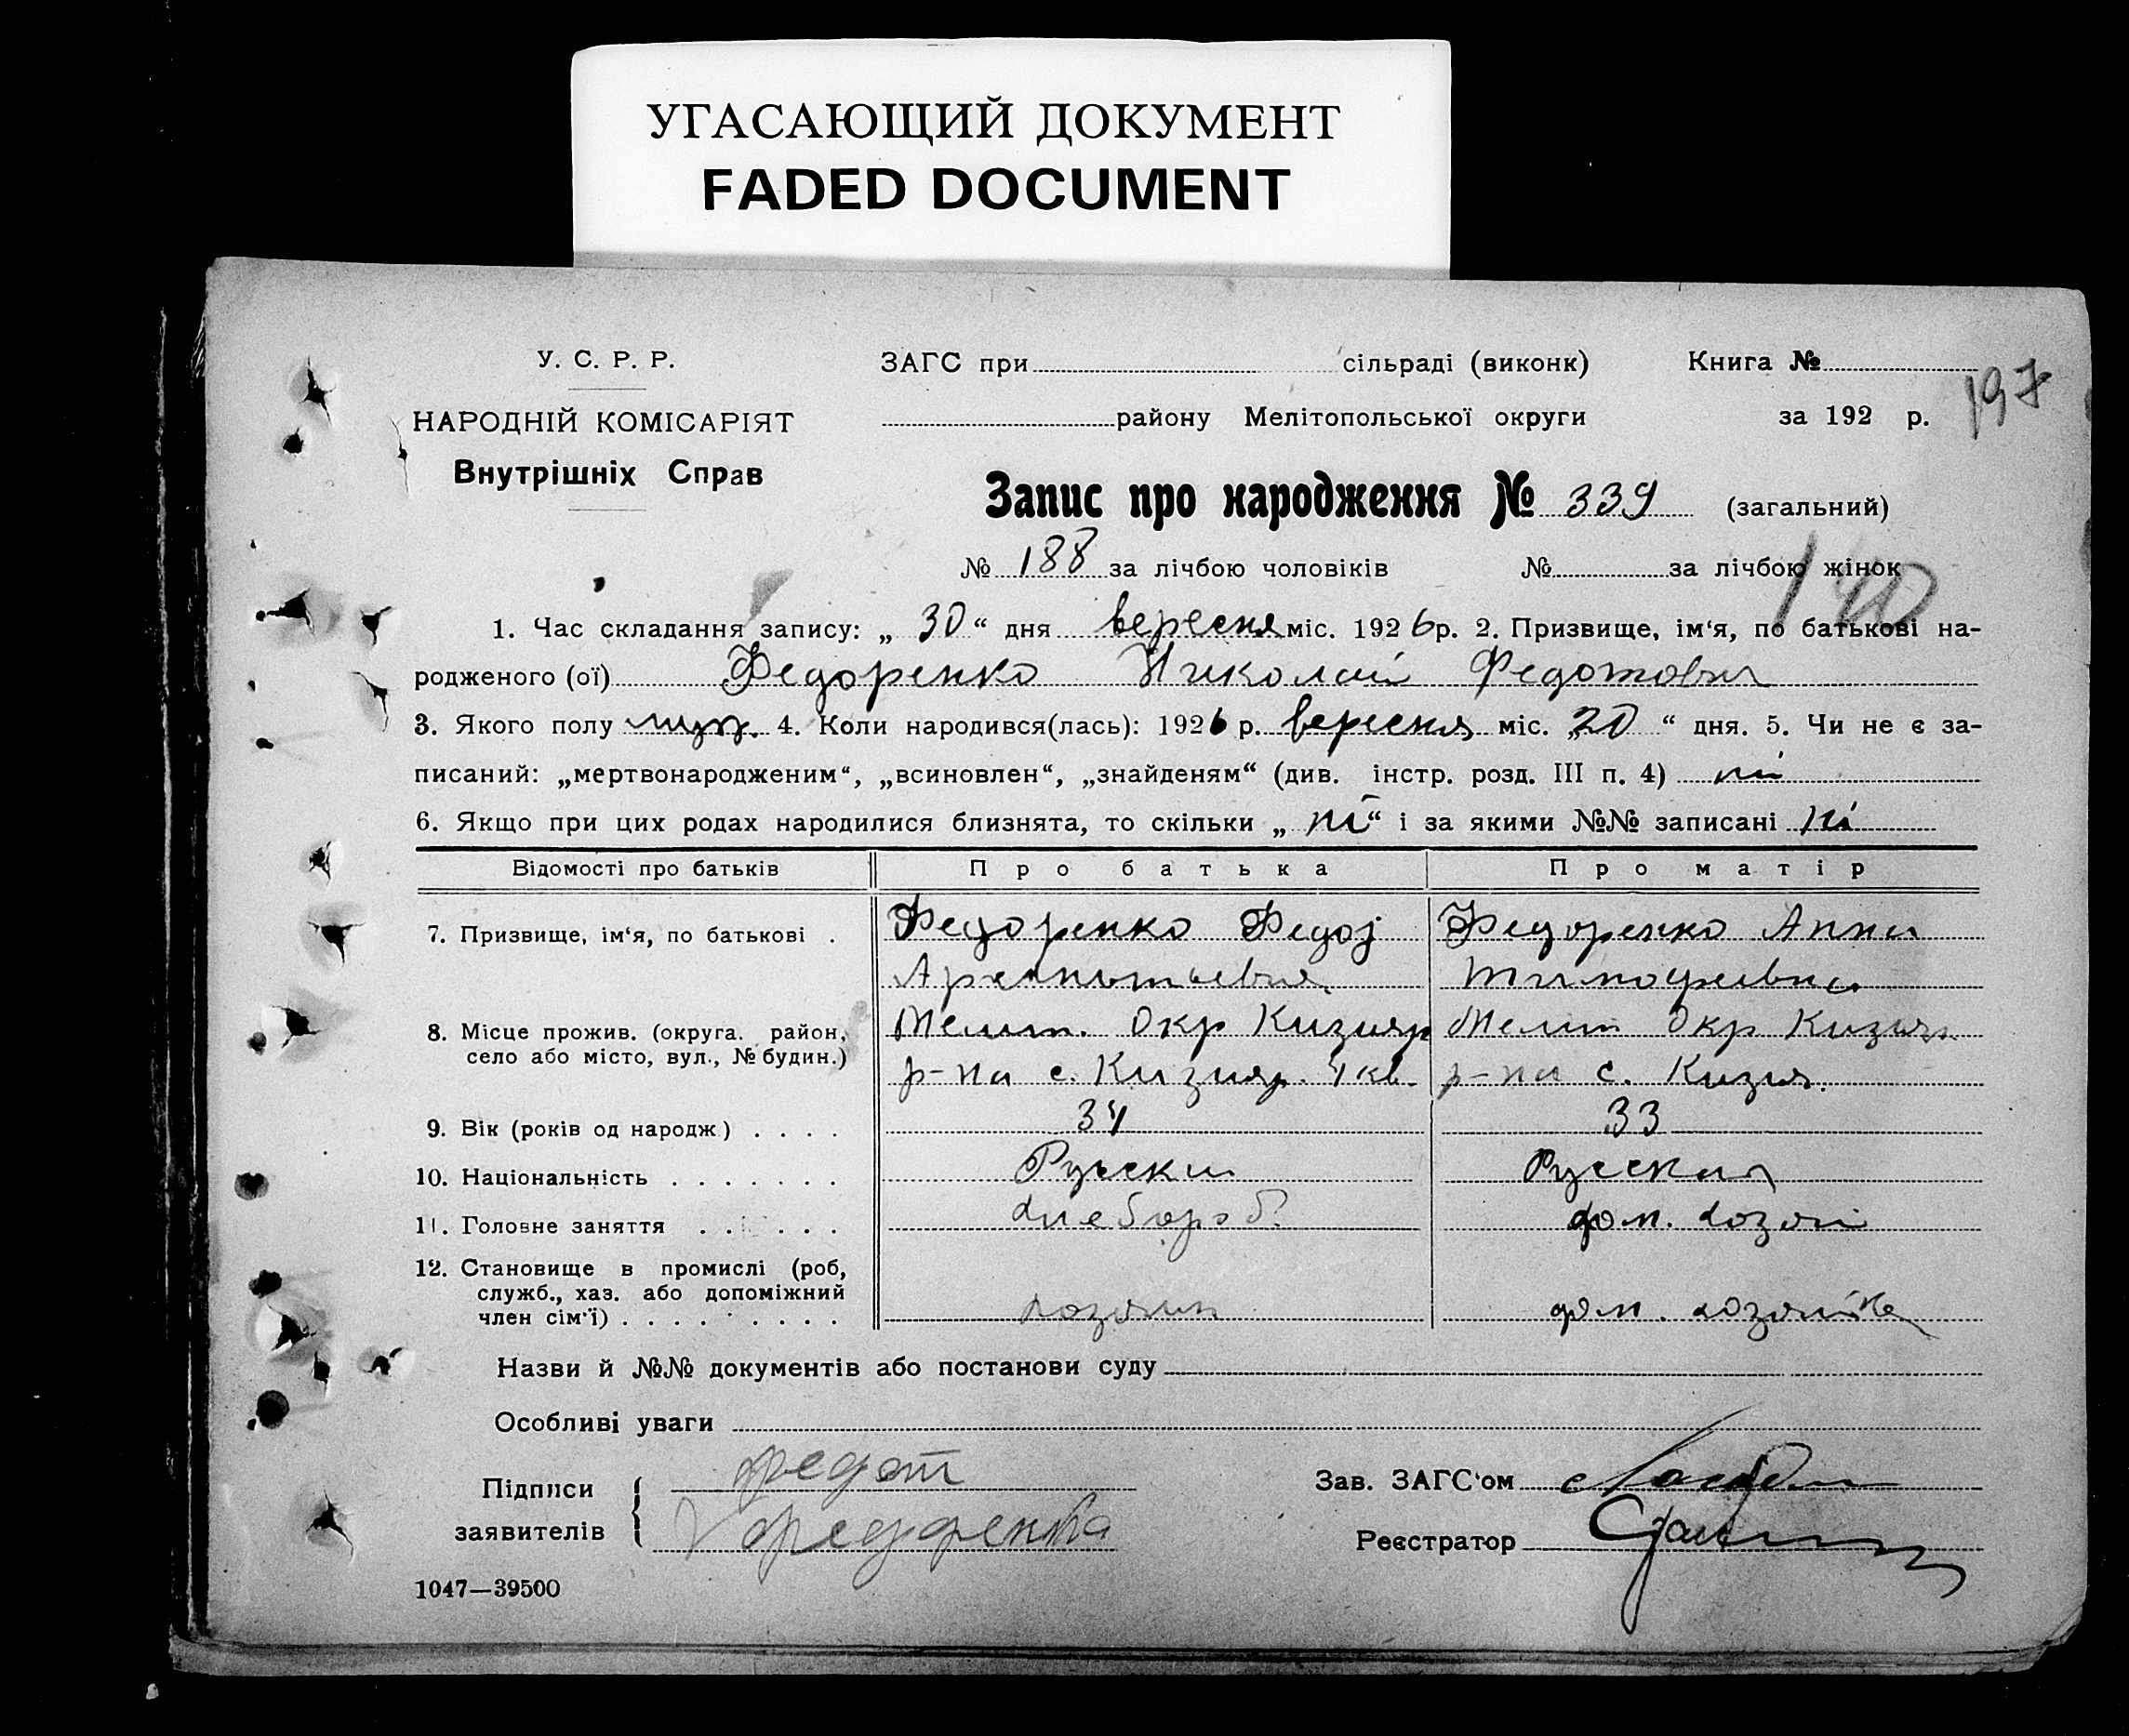 УГАСАЮЩИЙ ДОКУМЕНТ
FADED DOCUMENT
У. С. Р. Р.
НАРОДНІЙ КОМІСАРІЯТ
Внутрішніх Справ
ЗАГС при сільраді (виконк)
Книга №
району Мелітопольської округи
за 192 р.
197
Запис про народження № 339 (загальний)
№ 188 за лічбою чоловіків № за лічбою жінок
140
1. Час складання запису: „ 30 “ дня вересня міс. 1926 р. 2. Призвище, ім'я, по батькові на-
родженого (ої) Федоренко Николай Федотович
3. Якого полу муж. 4. Коли народився(лась): 1926 р. вересня міс. „20 “ дня. 5. Чи не є за-
писаний: „мертвонародженим“, „всиновлен“, „знайденям“ (див. інстр. розд. III п. 4) ні
6. Якщо при цих родах народилися близнята, то скільки „ ні “ і за якими №№ записані ні
Відомості про батьків Про батька Про матір
7. Призвище, ім'я, по батькові . Федоренко Федот Федоренко Анна
Тимофеевна
8. Місце прожив. (округа. район, Мелит. Окр Кизияр Мелит Окр Кизияр
село або місто, вул., № будин.) р-на с. Кизияр. 4 кв. р-на с. Кизия.
9. Вік (років од народж) . . . . 34 33
10. Національність . . . . . . . Руски Русская
11. Головне заняття . . . . . . Хлебороб. дом. хозяй
12. Становище в промислі (роб,
служб., хаз. або допоміжний
член сім'ї) . . . . . . . . . хозяин дом. хозяйка
Назви й №№ документів або постанови суду
Особливі уваги
Підписи
заявителів
федот
Федоренко
Зав. ЗАГС'ом
Реєстратор
1047—39500